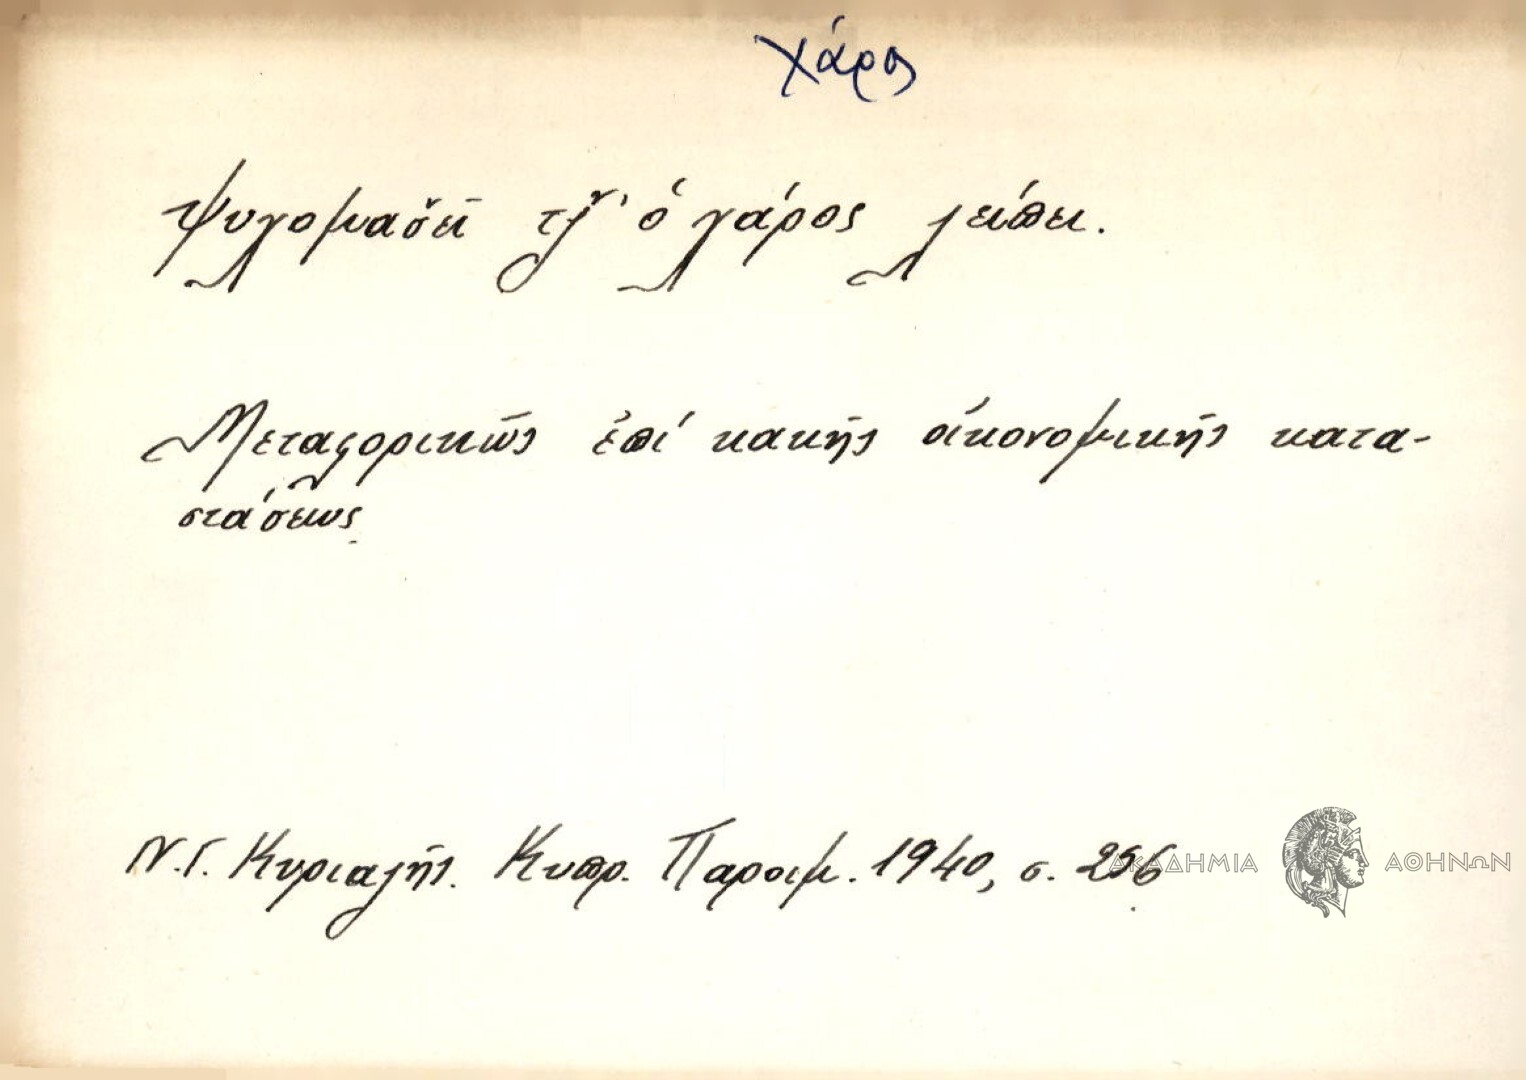 Χάρος
Ψυχομαχεῖ τζ̌' ὁ χάρος λείπει.
Μεταφορικῶς ἐπὶ κακῆς οἰκονομικῆς κατα-
στάσεως.
Ν. Γ. Κυριαζῆς. Κυπρ. Παροιμ. 1940, σ. 256
ΑΚΑΔΗΜΙΑ ΑΘΗΝΩΝ